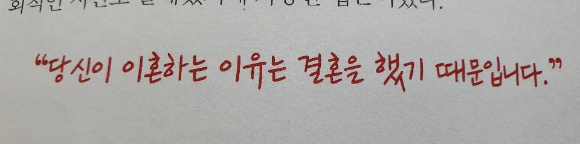 “당신이 이혼하는 이유는 결혼을 했기 때문입니다.”